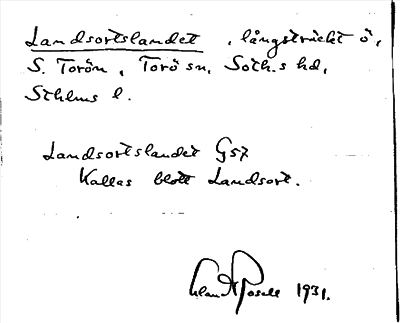 Landsortslandet, långsträckt ö,
S. Torön, Torö sn, Soth.s hd,
Sthlms l.
Landsortslandet G57
Kallas blott Landsort.
1931.